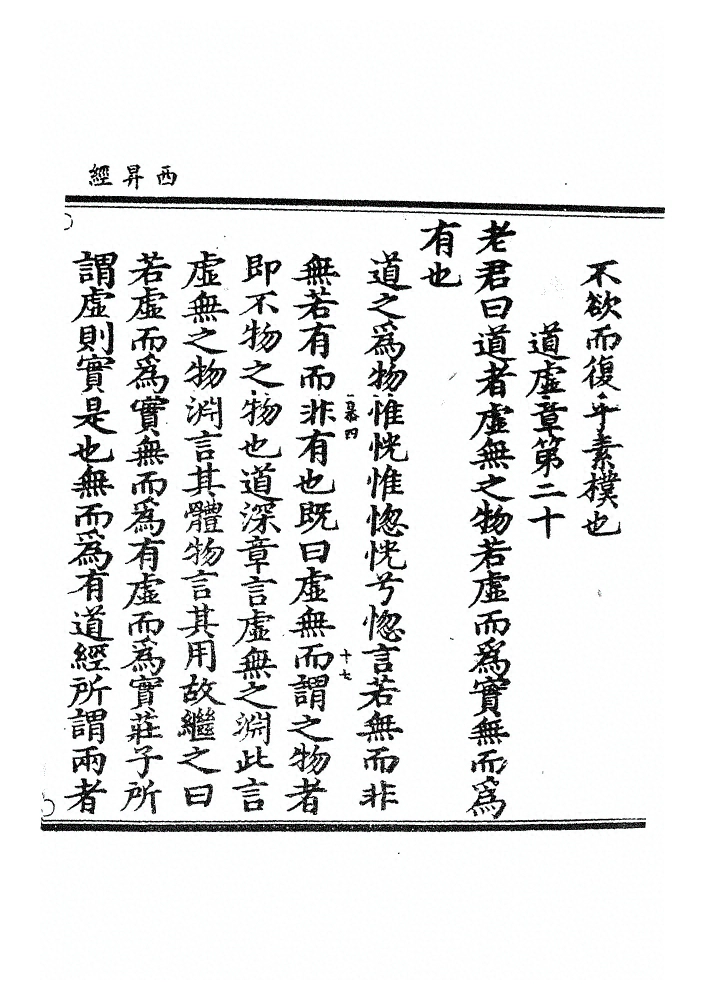 西昇經
不欲而復乎素樸也
道虛章第二十
老君曰道者虛無之物若虛而為實無而為
有也
道之為物惟恍惟惚恍兮惚言若無而非
無若有而非有也既曰虛無而謂之物者
即不物之物也道深章言虛無之淵此言
虛無之物淵言其體物言其用故繼之曰
若虛而為實無而為有虛而為實莊子所
謂虛則實是也無而為有道經所謂兩者
十七